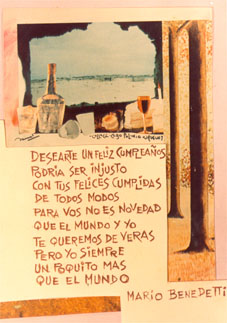 DESEARTE UN FELIZ CUMPLEAÑOS
PODRIA SER INJUSTO
CON TUS FELICES CUMPLIDAS
DE TODOS MODOS
PARA VOS NO ES NOVEDAD
QUE EL MUNDO Y YO
TE QUEREMOS DE VERAS
PERO YO SIEMPRE
UN POQUITO MAS
QUE EL MUNDO
MARIO BENEDETTI